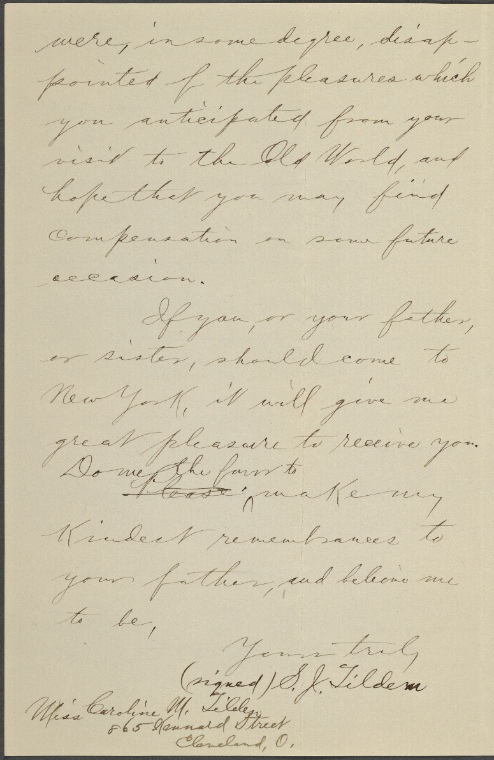 were, in some degree, disap-
pointed of the pleasures which
you anticipated from your
visit to the Old World, and
hope that you may find
compensation on some future
occasion.
If you, or your father,
or sister, should come to
New York, it will give me
great pleasure to receive you.
Do me the favor to
Please make my
kindest remembrances to
your father, and believe me
to be,
Yours truly
(signed) S. J. Tilden
Miss Caroline M. Tilden
865 Kennard Street
Cleveland, O.